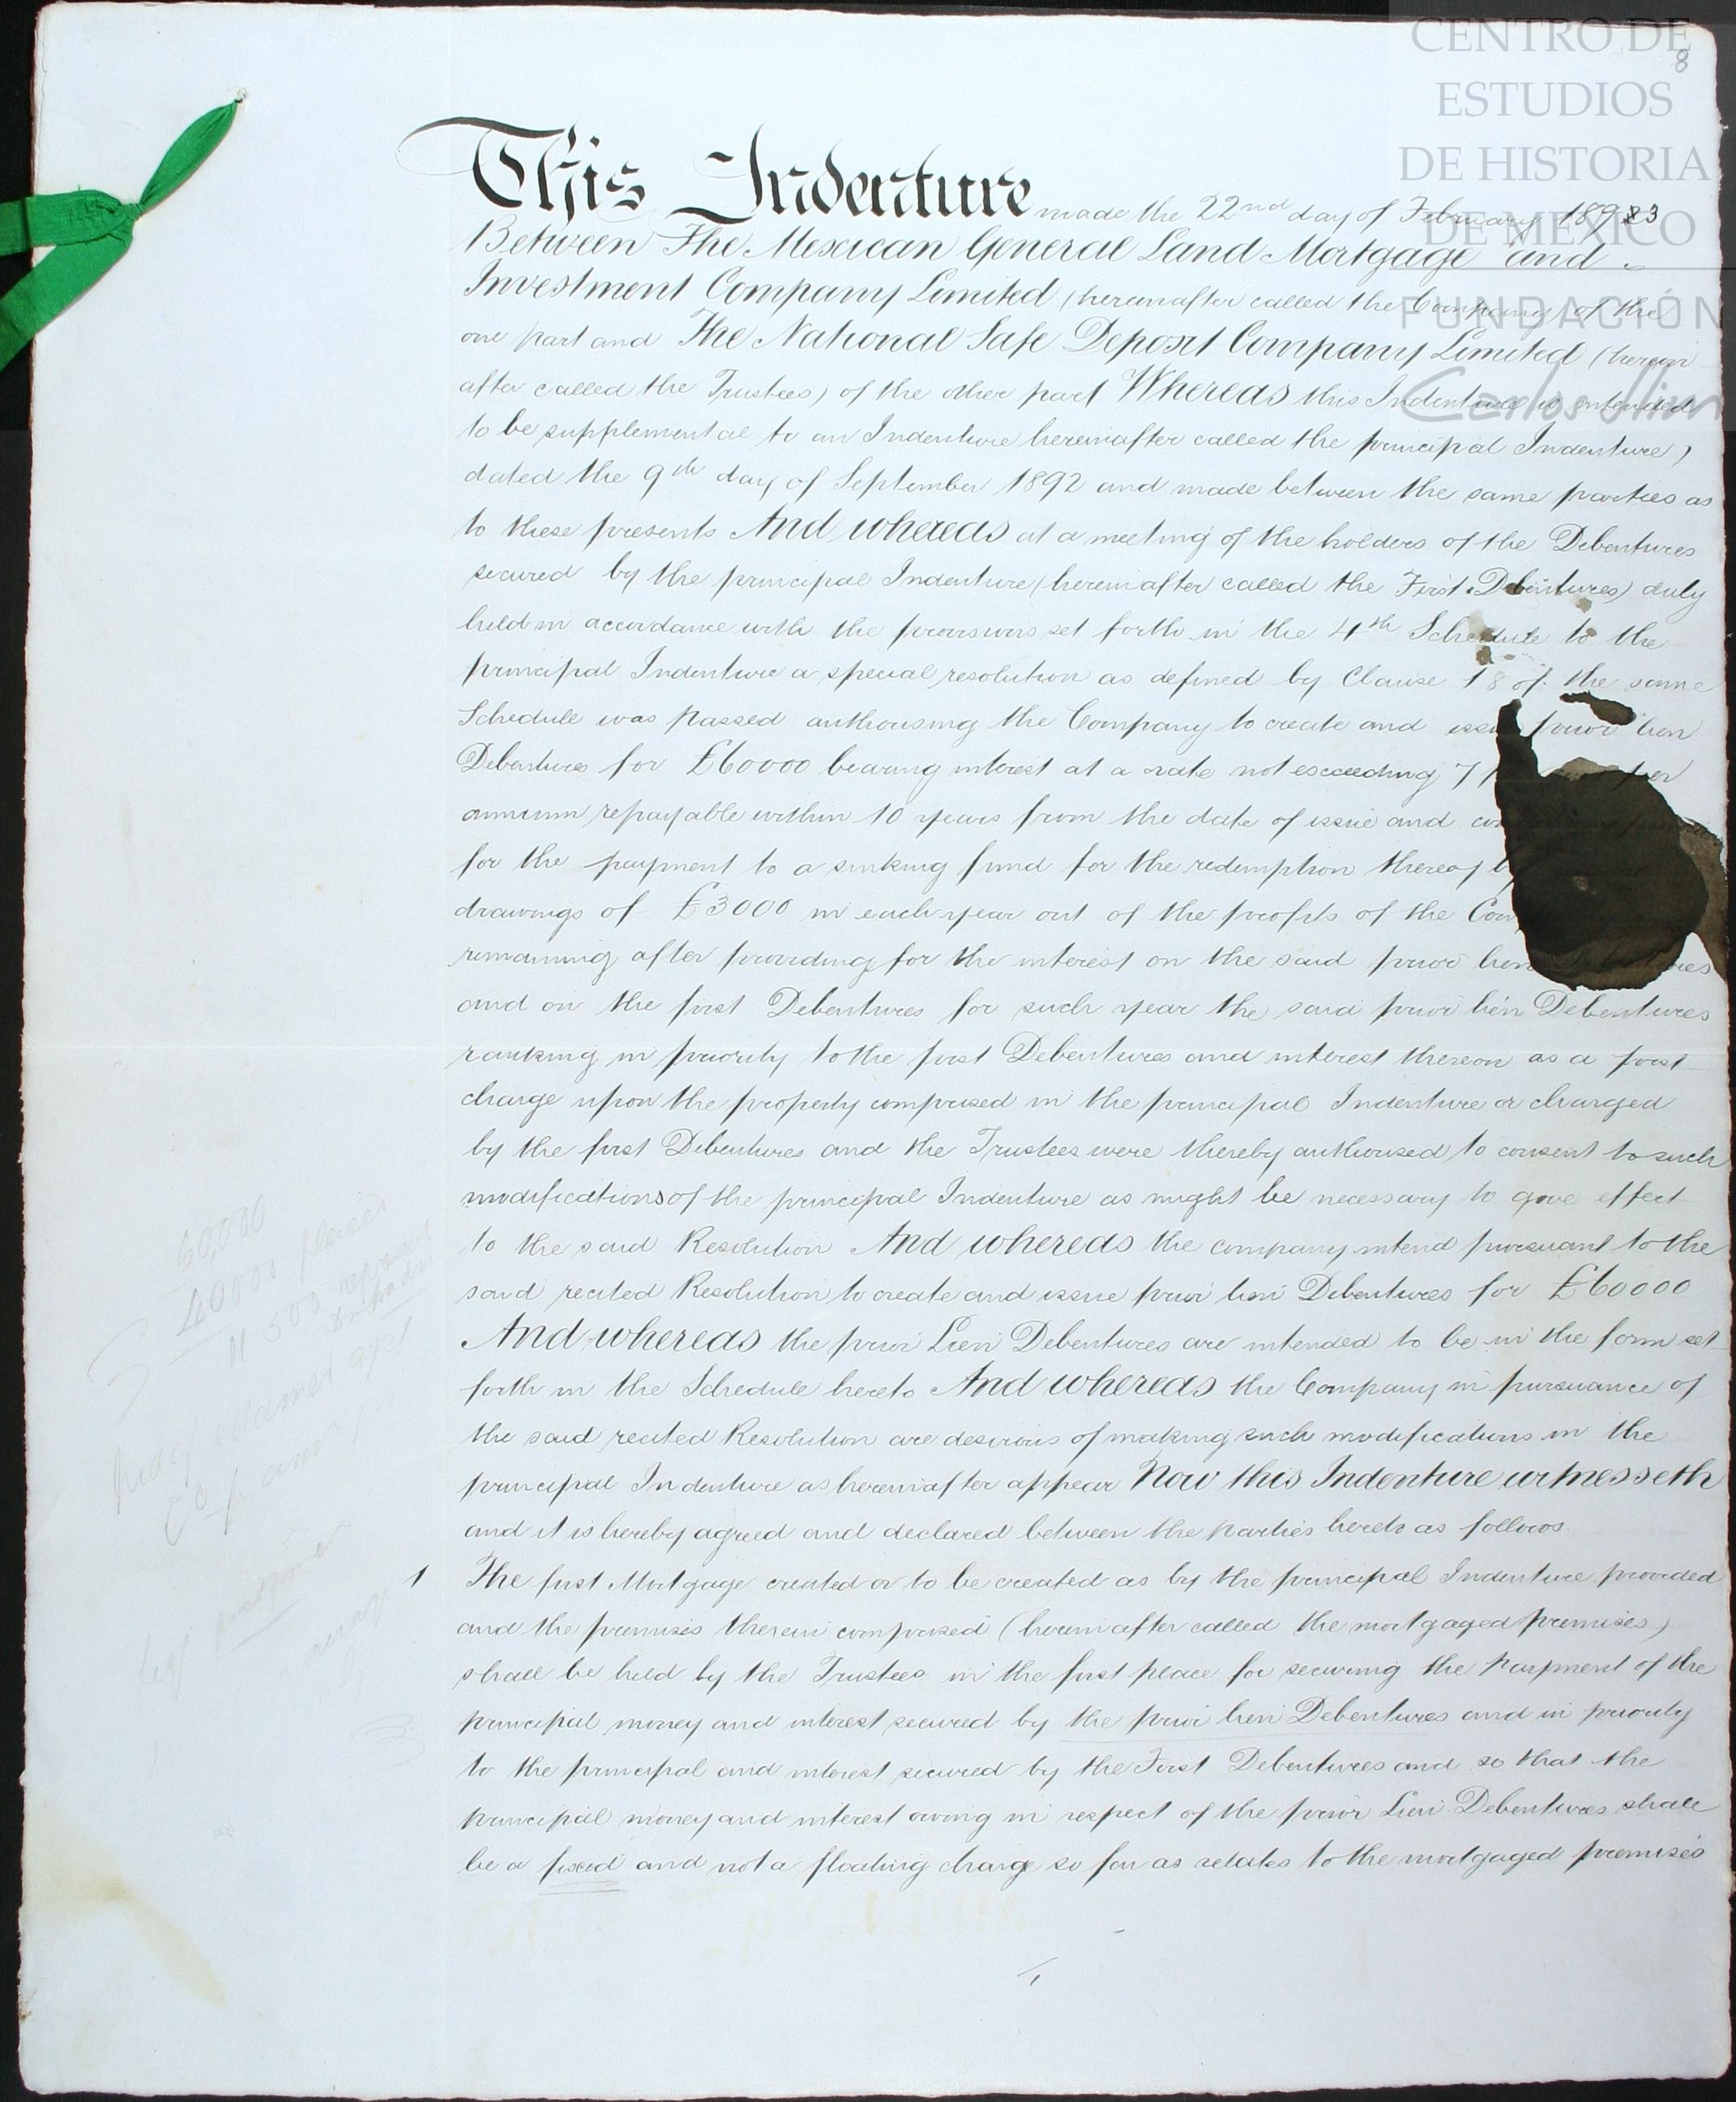 CENTRO DE
ESTUDIOS
DE HISTORIA
DE MEXICO
FUNDACIÓN
Carlos Slim
8
This Indenture made the 22nd day of February 1893
Between The Mexican General Land Mortgage and
Investment Company Limited (hereinafter called the Company) of the
one part and The National Safe Deposit Company Limited (herein
after called the Trustees) of the other part Whereas this Indenture is intended
to be supplemental to an Indenture hereinafter called the principal Indenture)
dated the 9th day of September 1892 and made between the same parties as
to these presents And whereas at a meeting of the holders of the Debentures
secured by the principal Indenture (hereinafter called the First Debentures) duly
held in accordance with the provisions set forth in the 4th Schedule to the
principal Indenture a special resolution as defined by Clause 18 of the same
Schedule was passed authorising the Company to create and issue prior lien
Debentures for £60000 bearing interest at a rate not exceeding 7 per
annum repayable within 10 years from the date of issue and
for the payment to a sinking fund for the redemption thereof
drawings of £3000 in each year out of the profits of the
remaining after providing for the interest on the said prior lien
and on the first Debentures for such year the said prior lien Debentures
ranking in priority to the first Debentures and interest thereon as a first
charge upon the property comprised in the principal Indenture or charged
by the first Debentures and the Trustees were thereby authorised to consent to such
modifications of the principal Indenture as might be necessary to give effect
to the said Resolution And whereas the company intend pursuant to the
said recited Resolution to create and issue prior lien Debentures for £60000
And whereas the prior Lien Debentures are intended to be in the form set
forth in the Schedule hereto And whereas the Company in pursuance of
the said recited Resolution are desirous of making such modifications in the
principal Indenture as hereinafter appear Now this Indenture witnesseth
and it is hereby agreed and declared between the parties hereto as follows.
1 The first Mortgage created or to be created as by the principal Indenture provided
and the premises therein comprised (hereinafter called the mortgaged premises)
shall be held by the Trustees in the first place for securing the payment of the
principal money and interest secured by the prior lien Debentures and in priority
to the principal and interest secured by the First Debentures and so that the
principal money and interest owing in respect of the prior Lien Debentures shall
be a fixed and not a floating charge so far as relates to the mortgaged premises
60,000
40000
11 500
1